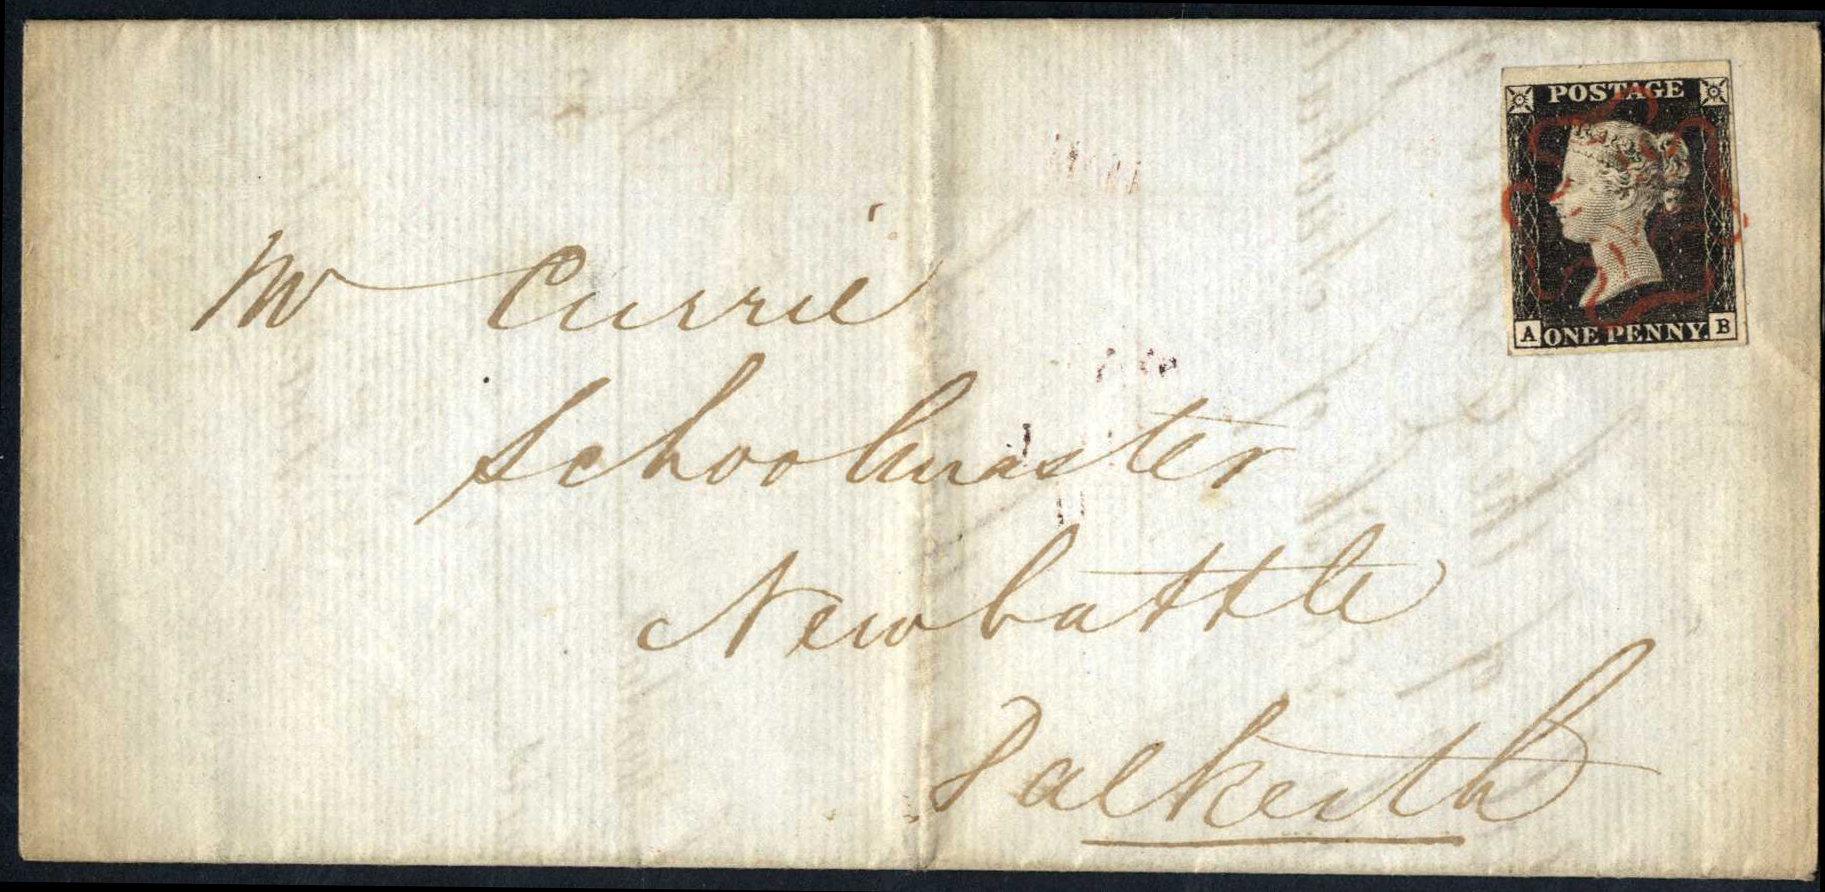 POSTAGE
A ONE PENNY. B
Mr Currie
Schoolmaster
Newbattle
Dalkeith